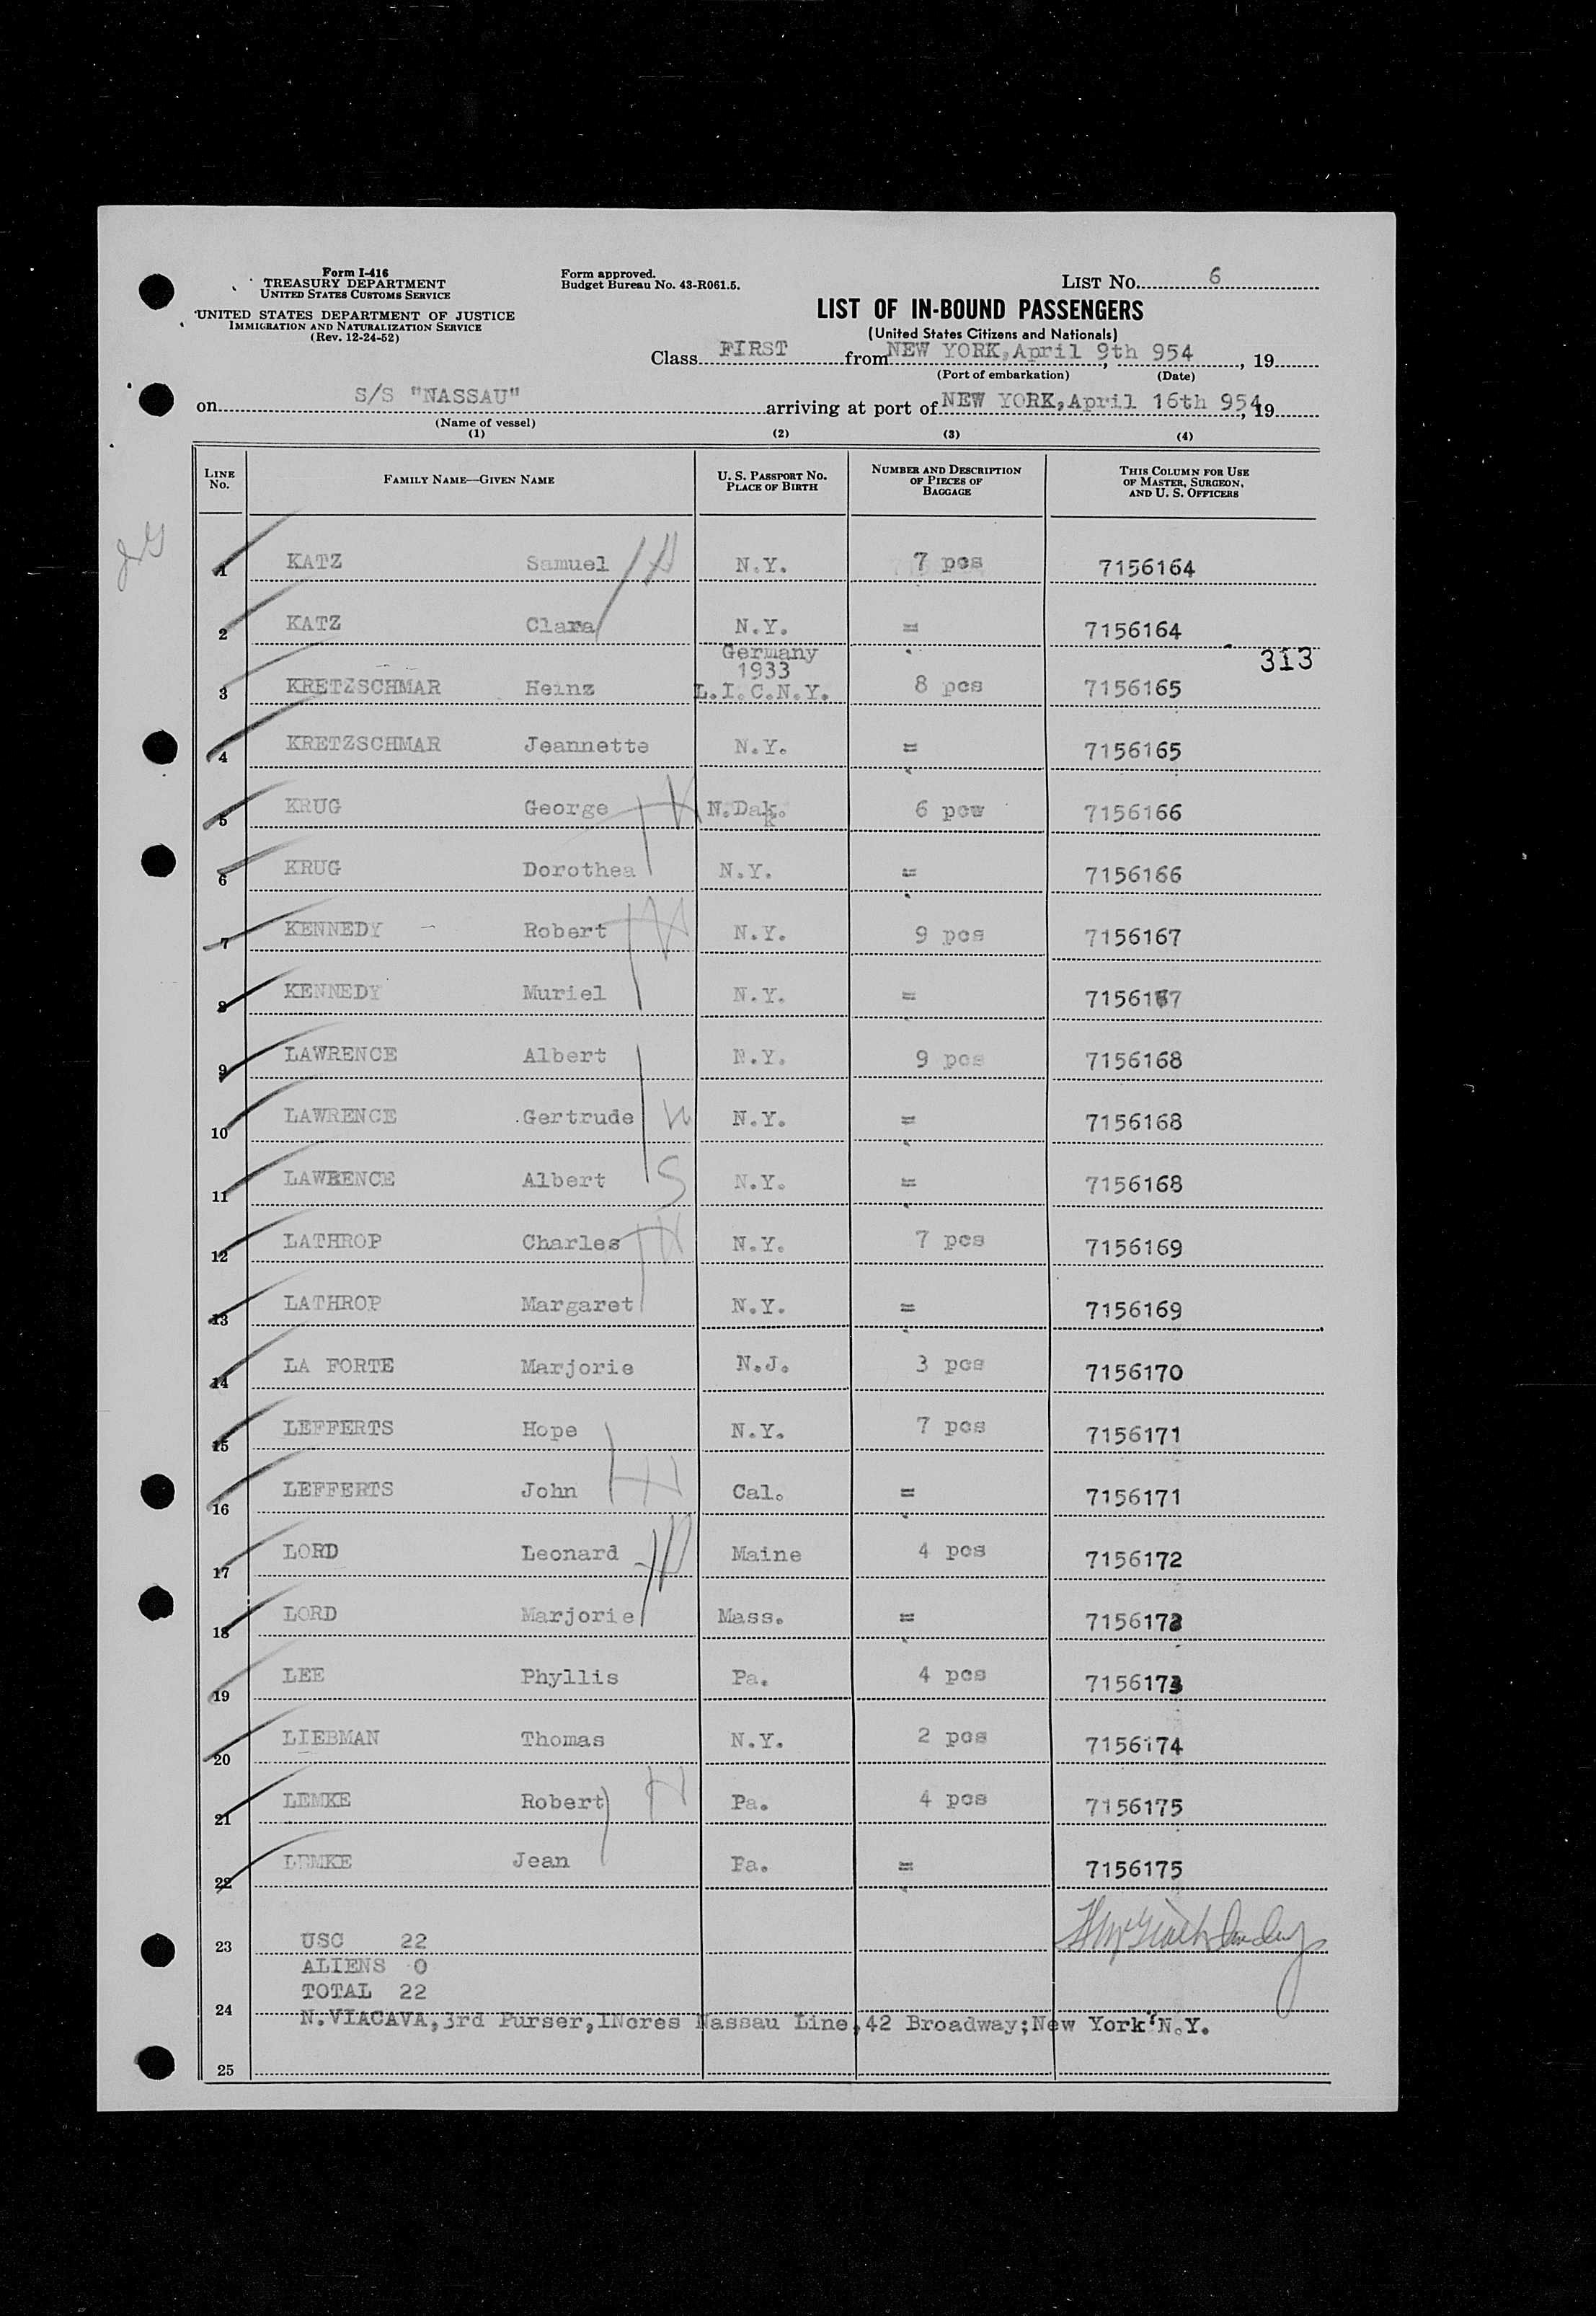 Form I-416
TREASURY DEPARTMENT
UNITED STATES CUSTOMS SERVICE
UNITED STATES DEPARTMENT OF JUSTICE
IMMIGRATION AND NATURALIZATION SERVICE
(Rev. 12-24-52)
Form approved.
Budget Bureau No. 43-R061.5.
LIST No. 6
LIST OF IN-BOUND PASSENGERS
(United States Citizens and Nationals)
Class FIRST from NEW YORK, April 9th 954, 19
(Port of embarkation) (Date)
on S/S "NASSAU" arriving at port of NEW YORK, April 16th 954, 19
(Name of vessel)
(1) (2) (3) (4)
LINE No. FAMILY NAME—GIVEN NAME U. S. PASSPORT No. PLACE OF BIRTH NUMBER AND DESCRIPTION OF PIECES OF BAGGAGE THIS COLUMN FOR USE OF MASTER, SURGEON, AND U. S. OFFICERS
1 KATZ Samuel H N.Y. 7 pcs 7156164
2 KATZ Clara N.Y. = 7156164
313
Germany
1933
3 KRETZSCHMAR Heinz L.I.C.N.Y. 8 pcs 7156165
4 KRETZSCHMAR Jeannette N.Y. = 7156165
5 KRUG George H N.Dak. 6 pcw 7156166
6 KRUG Dorothea N.Y. = 7156166
7 KENNEDY Robert H N.Y. 9 pcs 7156167
8 KENNEDY Muriel N.Y. = 7156167
9 LAWRENCE Albert N.Y. 9 pcs 7156168
10 LAWRENCE Gertrude N.Y. = 7156168
11 LAWRENCE Albert S N.Y. = 7156168
12 LATHROP Charles H N.Y. 7 pcs 7156169
13 LATHROP Margaret N.Y. = 7156169
14 LA FORTE Marjorie N.J. 3 pcs 7156170
15 LEFFERTS Hope N.Y. 7 pcs 7156171
16 LEFFERTS John H Cal. = 7156171
17 LORD Leonard H Maine 4 pcs 7156172
18 LORD Marjorie Mass. = 7156172
19 LEE Phyllis Pa. 4 pcs 7156173
20 LIEBMAN Thomas N.Y. 2 pcs 7156174
21 LEMKE Robert H Pa. 4 pcs 7156175
22 LEMKE Jean Pa. = 7156175
23 USC 22
ALIENS 0
TOTAL 22
24
N.VIACAVA,3rd Purser,INcres Nassau Line,42 Broadway;New York N.Y.
25